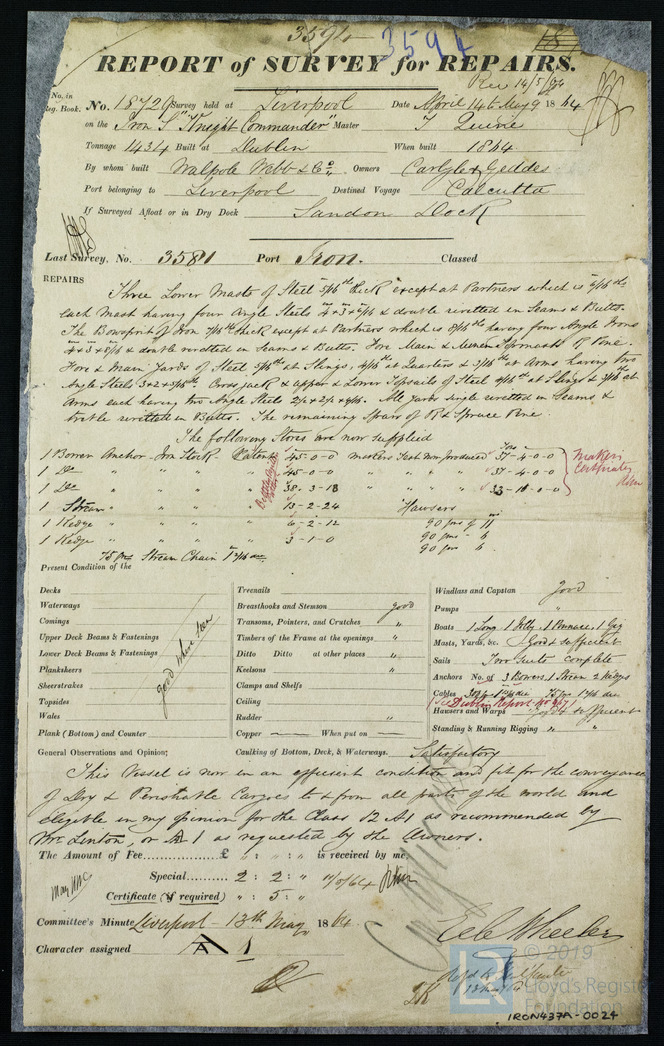 3594 3594
REPORT of SURVEY for REPAIRS.
Rec 14/5/64
No. in Reg. Book. No. 18720 Survey held at Liverpool Date April 14th May 9 1864
on the Iron S "Knight Commander" Master T Quine
Tonnage 1434 Built at Dublin When built 1864
By whom built Walpole Webb & Co., Owners Carlyle & Geddes
Port belonging to Liverpool Destined Voyage Calcutta
If Surveyed Afloat or in Dry Dock Sandon Dock
Last Survey, No. 3581 Port Iron. Classed
REPAIRS
Three Lower Masts of Steel 5/16th thick except at Partners which is 6/16ths
each Mast having four Angle Steels & double rivetted in Seams & Butts.
The Bowsprit of Iron 7/16th thick except at Partners which is 8/16ths having four Angle Irons
& double rivetted in Seams & Butts. Fore Main & Mizen masts of Pine.
Fore & Main Yards of Steel 5/16ths at Slings, 4/16ths at Quarters & 3/16ths at Arms having two
Angle Steels 3+2+5/16ths Cross jack & upper & Lower Topsails of Steel 4/16ths at Slings & 3/16ths at
Arms each having two Angle Steels All Yards single rivetted in Seams &
treble rivetted in Butts. The remaining Spars of P & Spruce Pine.
The following Stores are now supplied
1 Bower Anchor - Iron Stock - Patent 45-0-0 makers Test Now produced 37-4-0-0
1 Do " " " 45-0-0 " " " " 37-4-0-0
1 Do " " " 38.3-18 33-10-0-0
Makers Certificates
1 Stream " " " 13-2-24 Hawsers
1 Kedge " " " 6-2-12 90 fms of 11
1 Kedge " " " 3-1-0 90 fms - 6
90 fms 6
75 fms Stream Chain 1 3/16
Present Condition of the
Decks
Waterways
Comings
Upper Deck Beams & Fastenings
Lower Deck Beams & Fastenings
Planksheers
Sheerstrakes
Topsides
Wales
Plank (Bottom) and Counter
good where seen
Treenails
Breasthooks and Stemson good
Transoms, Pointers, and Crutches "
Timbers of the Frame at the openings "
Ditto Ditto at other places "
Keelsons "
Clamps and Shelfs
Ceiling
Rudder "
Copper — When put on —
Caulking of Bottom, Deck, & Waterways. Satisfactory
Windlass and Capstan good
Pumps "
Boats 1 Long 1 Jolly 1 Pinnace, 1 Gig
Masts, Yards, &c. Good & sufficient
Sails Two Suits complete
Anchors No. of 3 Bowers 1 Stream 2 Kedges
Cables
(See Dublin Report
Hawsers and Warps Good & sufficient
Standing & Running Rigging " "
General Observations and Opinion;
This Vessel is now in an efficient condition and fit for the conveyance
of Dry & Perishable Cargoes to & from all parts of the world and
eligible in my opinion for the Class 12 A1 as recommended by
Mr. Linton, or A 1 as requested by the Owners.
The Amount of Fee............... £ " : " : " is received by me,
Special......... 2 : 2 : " 11/5/64
Certificate (if required) " : 5 : "
Committee's Minute Liverpool - 13th May 1864.
Character assigned A 1
Wheeler
© 2019
LR
Lloyd's Register
Foundation
IRON437A-0024